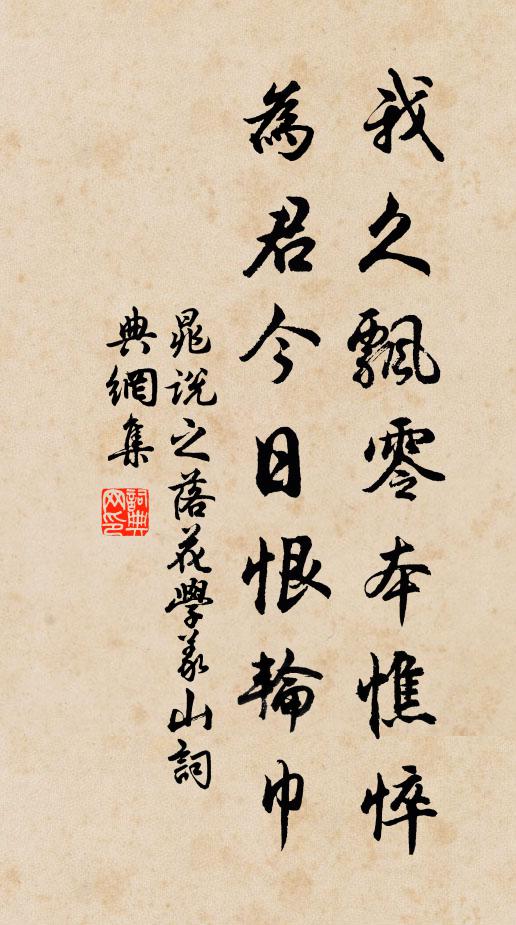 我久飄零本憔悴
為君今日恨輪巾
晁說之落花學義山詞
典網集
詞典
网印